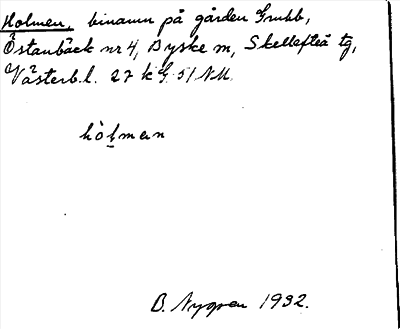 Holmen, binamn på gården Grubb,
Östanbäck nr 4, Byske sn, Skellefteå tg,
Västerb. l. 27 k G 51 NU.
hòlmen
B. Nygren 1932.